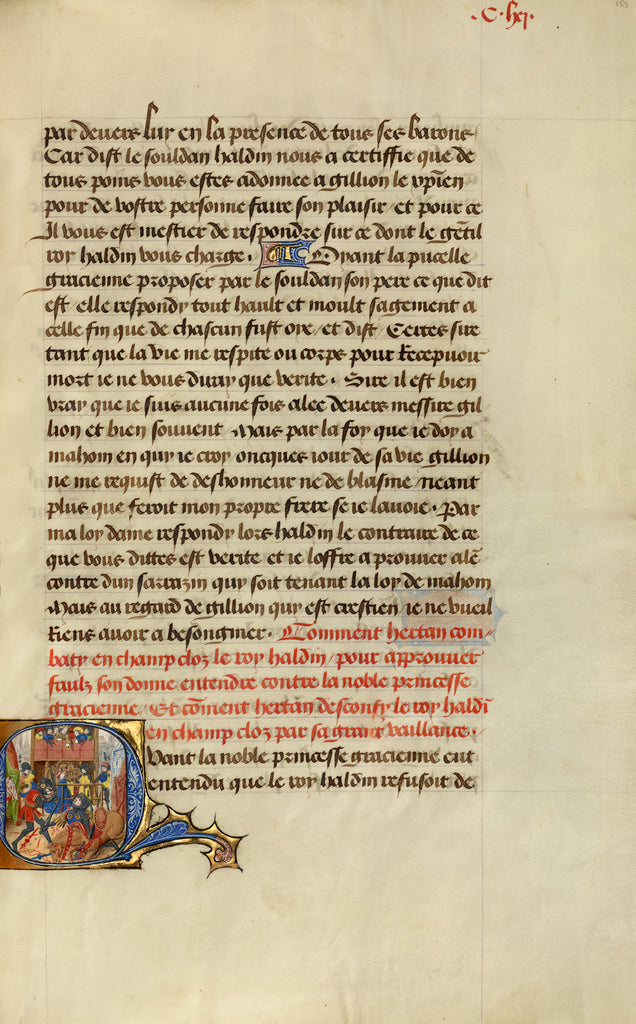 C. lxj.
par deuers luy en la presence de tous ses barons
Car dist le souldan haldin nous a certiffie que de
tous poins vous estes adonnee a gillion le xpien
pour de vostre personne faire son plaisir et pour ce
Il vous est mestier de respondre sur ce dont le gētil
roy haldin vous charge. Oyant la pucelle
gracienne proposer par le souldan son pere ce que dit
est elle respondy tout hault et moult sagement a
celle fin que de chascun fust oye / et dist Certes sire
tant que la vie me respite ou corps pour Recepuoir
mort ie ne vous diray que verite. Sire il est bien
vray que ie suis aucune fois alee deuers messire gil
lion et bien souuent Mais par la foy que ie doy a
mahom en quy ie croy oncques iour de sa vie gillion
ne me requist de deshonneur ne de blasme / neant
plus que feroit mon propre frere se ie lauoie. Par
ma loy dame respondy lors haldin le contraire de ce
que vous dittes est verite et ie loffre a prouuer alē
contre dun sarrazin quy soit tenant la loy de mahom
Mais au regard de gillion quy est crestien ie ne vueil
Riens auoir a besongnier. Comment hertan com/
baty en champ cloz le roy haldin / pour approuuer
faulz son donne entendre contre la noble princesse
gracienne / Et cōment hertan desconfy le roy haldī
en champ cloz par sa grant vaillance.
Quant la noble princesse gracienne eut
entendu que le roy haldin refusoit de